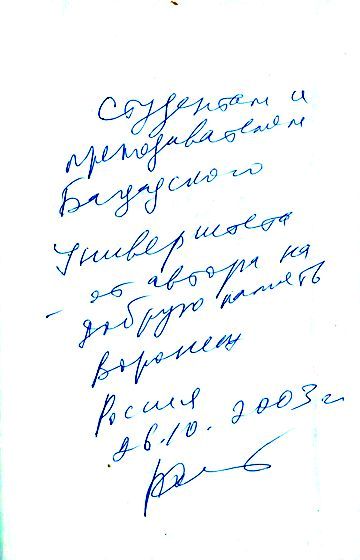 Студентам и
преподавателям
Багдадского
Университета
- от автора на
добрую память
Воронеж
Россия
26.10.2003 г.